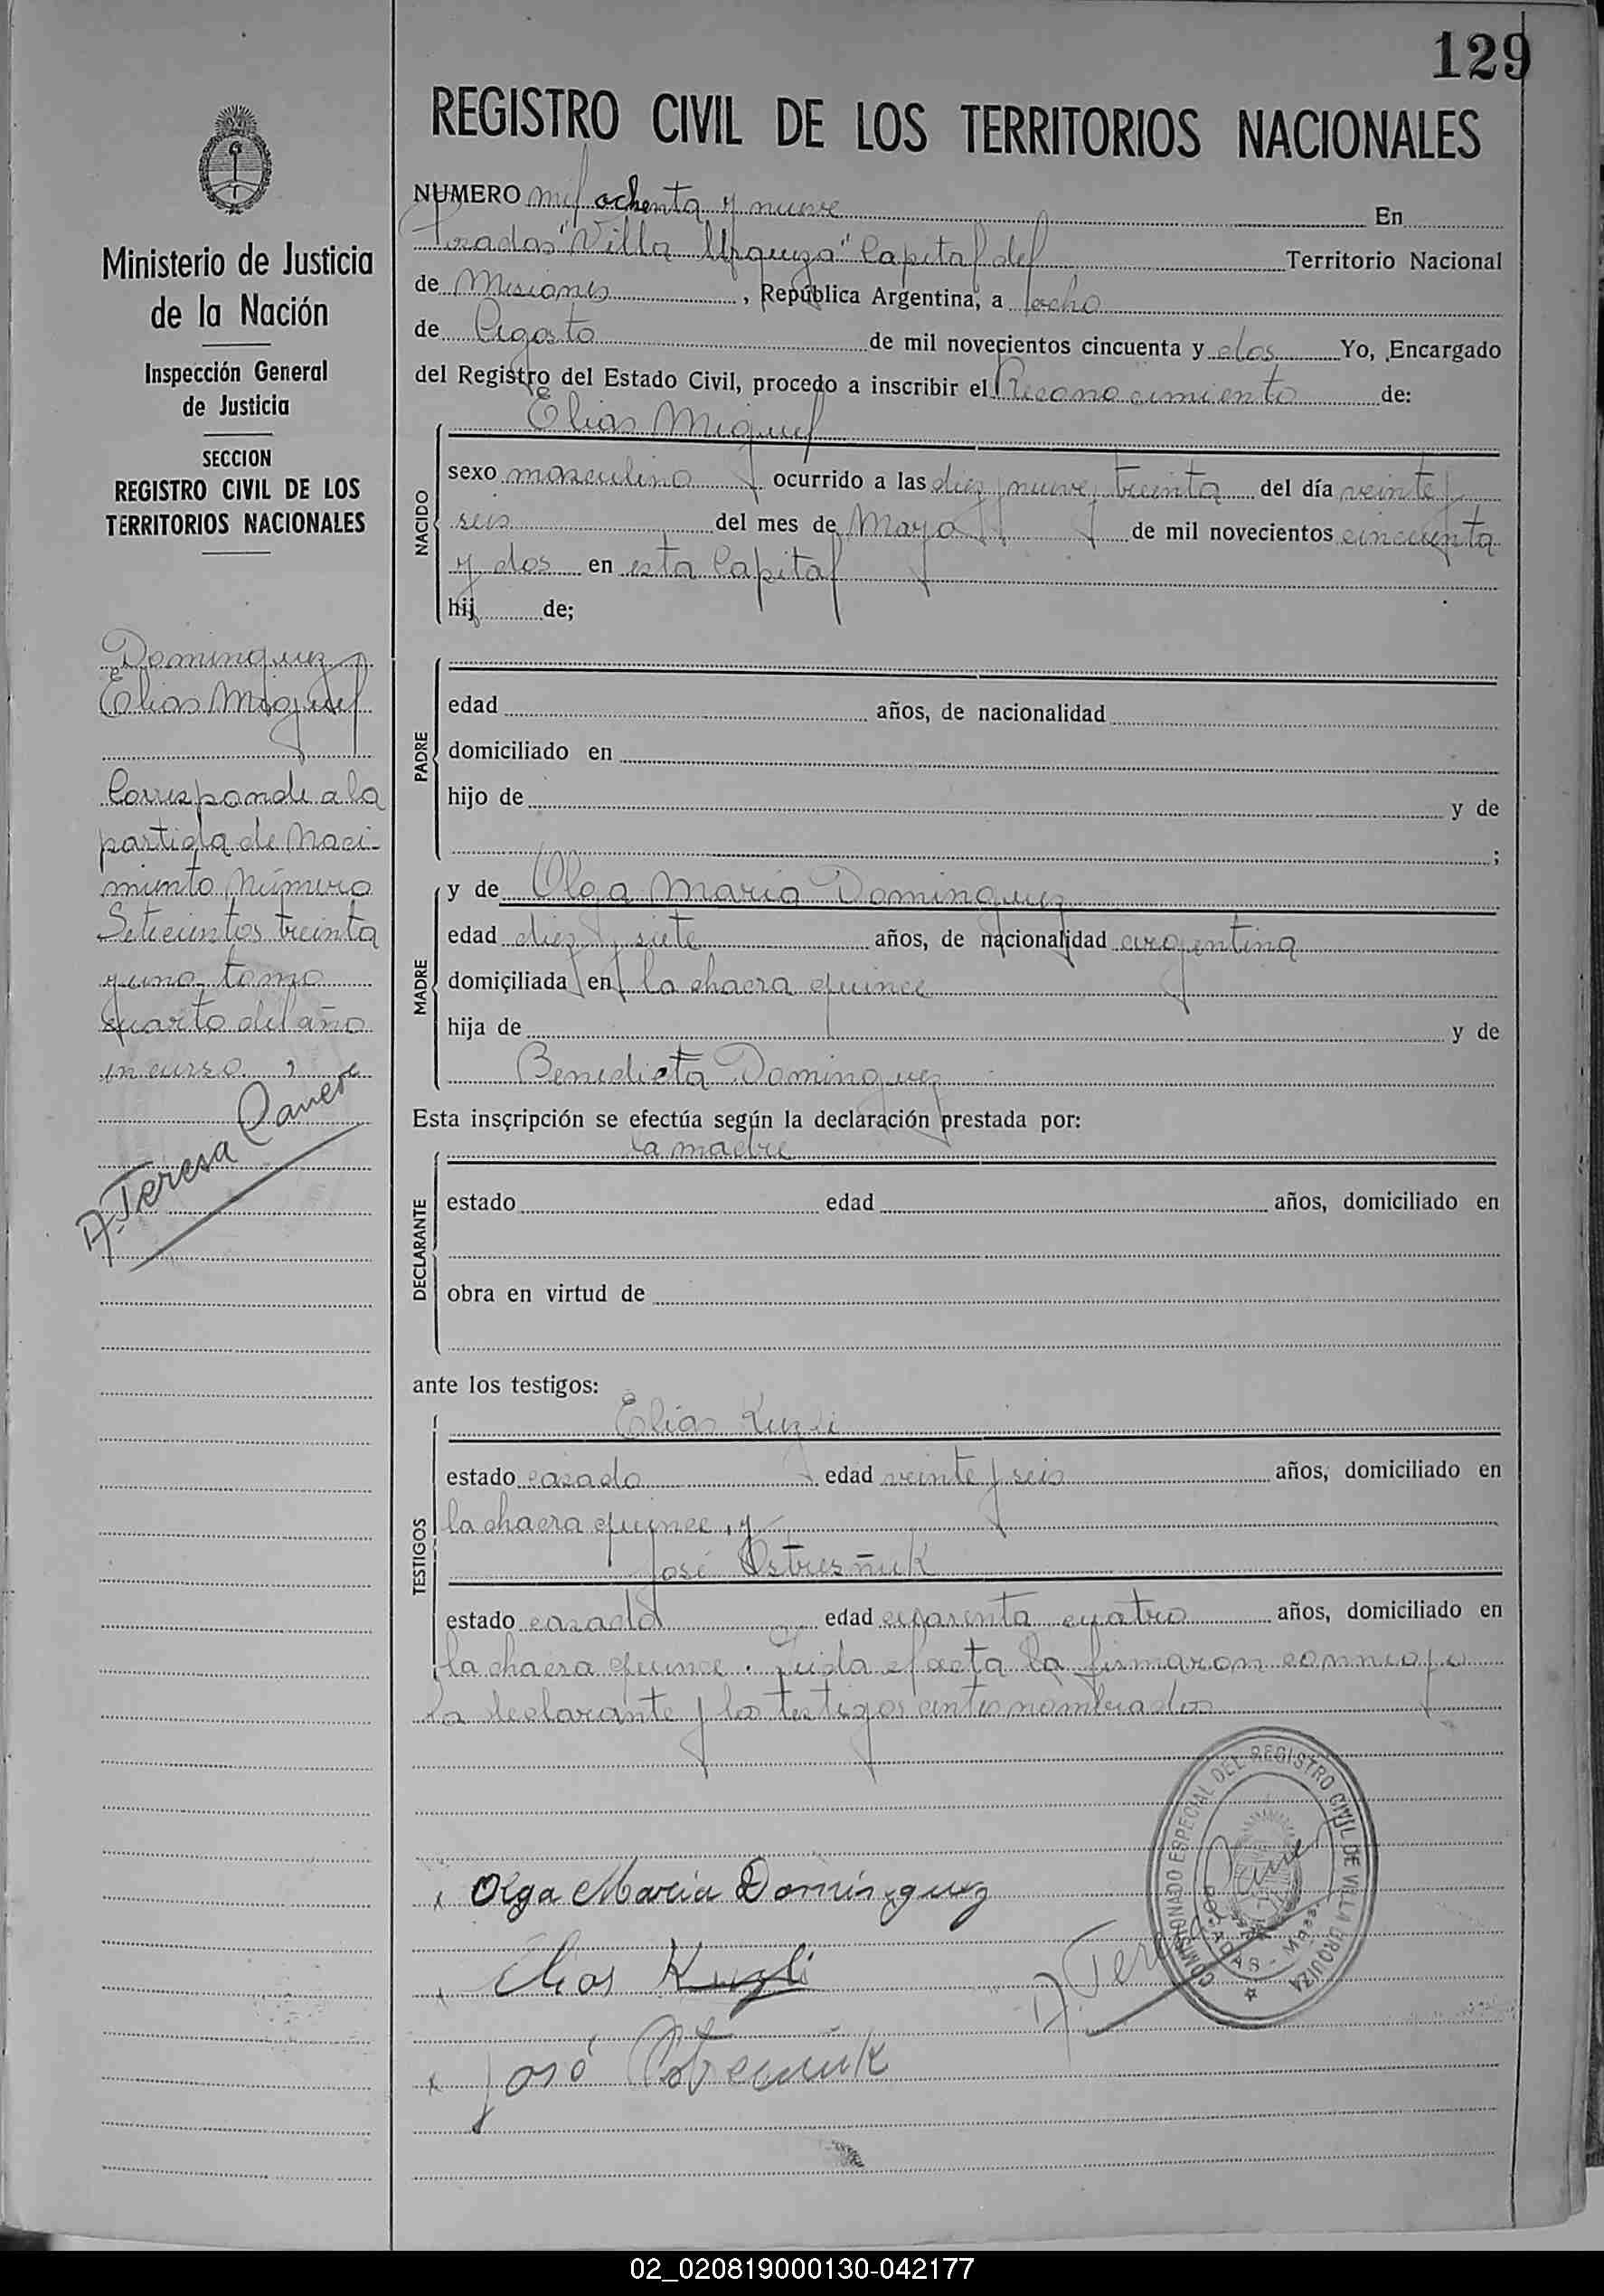 129
REGISTRO CIVIL DE LOS TERRITORIOS NACIONALES
Ministerio de Justicia
de la Nación
Inspección General
de Justicia
SECCION
REGISTRO CIVIL DE LOS
TERRITORIOS NACIONALES
Dominguez
Elias Miguel
Corresponde a la
partida de Naci-
miento Número
Setecientos treinta
y uno, tomo
cuarto del año
en curso.
A. Teresa
NUMERO mil ochenta y nueve En
Posadas "Villa Urquiza" Capital del Territorio Nacional
de Misiones, República Argentina, a ocho
de Agosto de mil novecientos cincuenta y dos Yo, Encargado
del Registro del Estado Civil, procedo a inscribir el Reconocimiento de:
NACIDO
Elias Miguel
sexo masculino ocurrido a las diez y nueve, treinta del día veinte y
seis del mes de Mayo de mil novecientos cincuenta
y dos en esta Capital
hij de;
PADRE
edad años, de nacionalidad
domiciliado en
hijo de y de
;
MADRE
y de Olga Maria Dominguez
edad diez y siete años, de nacionalidad argentina
domiciliada en la chacra quince
hija de y de
Benedicta Dominguez
Esta inscripción se efectúa según la declaración prestada por:
DECLARANTE
la madre
estado edad años, domiciliado en
obra en virtud de
ante los testigos:
TESTIGOS
Elias Kuzli
estado casado edad veinte y seis años, domiciliado en
la chacra quince, y
José
estado casado edad cuarenta cuatro años, domiciliado en
la chacra quince. Leida el acta la firmaron conmigo
la declarante y los testigos antes nombrados
Olga Maria Dominguez
Elias Kuzli
José
A. Ter
COMISIONADO ESPECIAL DEL REGISTRO CIVIL DE VILLA URQUIZA
POSADAS - Mnes.
02_020819000130-042177